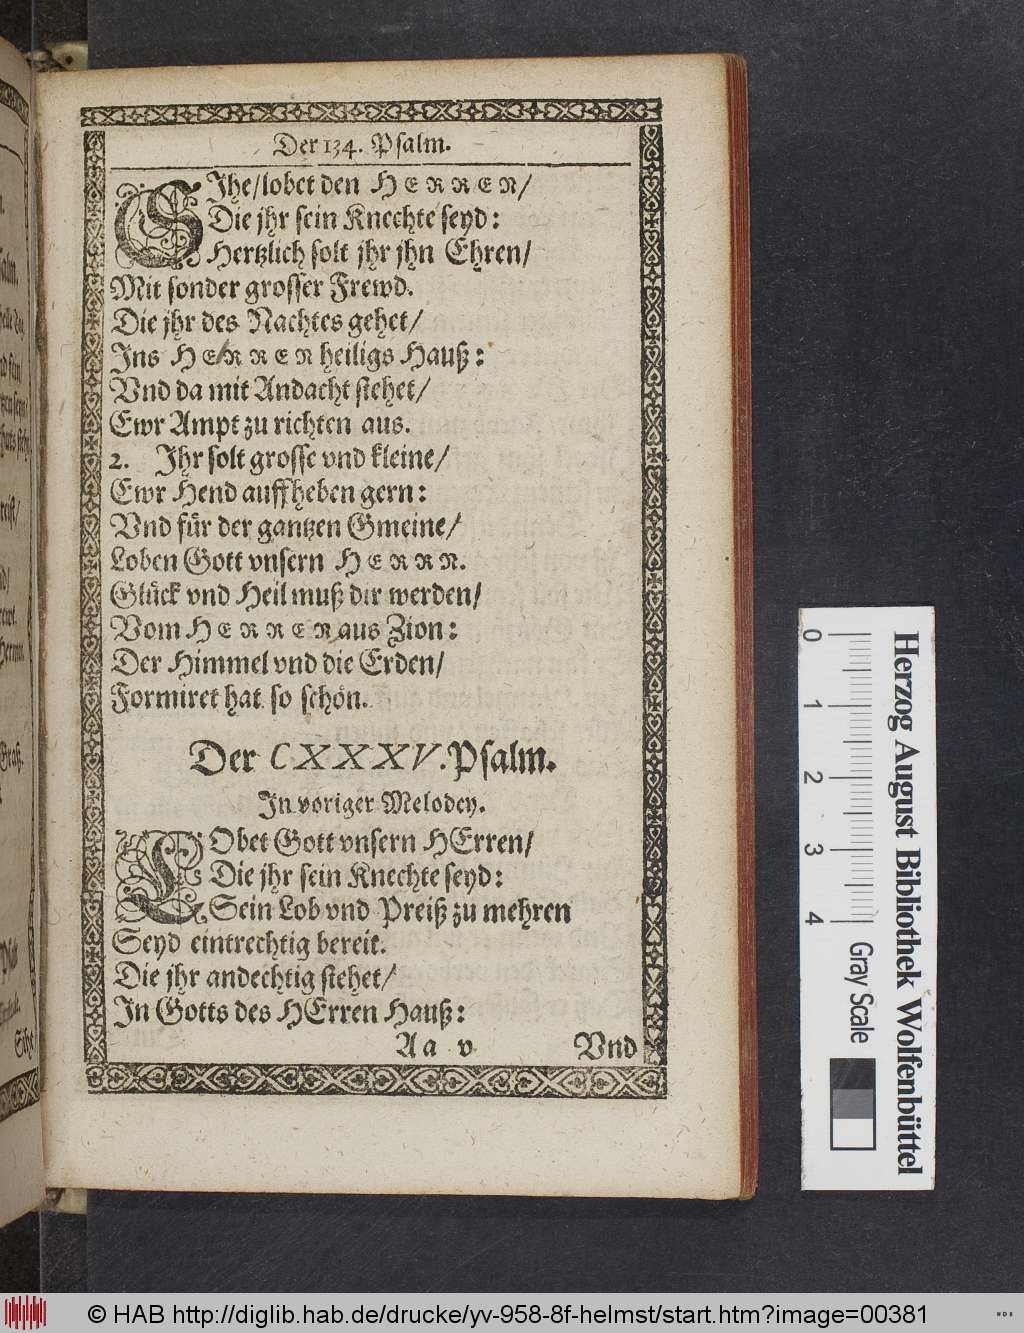 Der 134. Psalm.
SJhe/lobet den HERREN/
Die jhr sein Knechte seyd:
Hertzlich solt jhr jhn Ehren/
Mit sonder grosser Frewd.
Die jhr des Nachtes gehet/
Jns HERREN heiligs Hauß:
Vnd da mit Andacht stehet/
Ewr Ampt zu richten aus.
2. Jhr solt grosse vnd kleine/
Ewr Hend auffheben gern:
Vnd für der gantzen Gmeine/
Loben Gott vnsern HERRN.
Glück vnd Heil muß dir werden/
Vom HERREN aus Zion:
Der Himmel vnd die Erden/
Formiret hat so schön.
Der CXXXV. Psalm.
Jn voriger Melodey.
LObet Gott vnsern HErren/
Die jhr sein Knechte seyd:
Sein Lob vnd Preiß zu mehren
Seyd eintrechtig bereit.
Die jhr andechtig stehet/
Jn Gotts des HErren Hauß:
Aa v Vnd
Sihe
0 1 2 3 4
Gray Scale
Herzog August Bibliothek Wolfenbüttel
© HAB http://diglib.hab.de/drucke/yv-958-8f-helmst/start.htm?image=00381